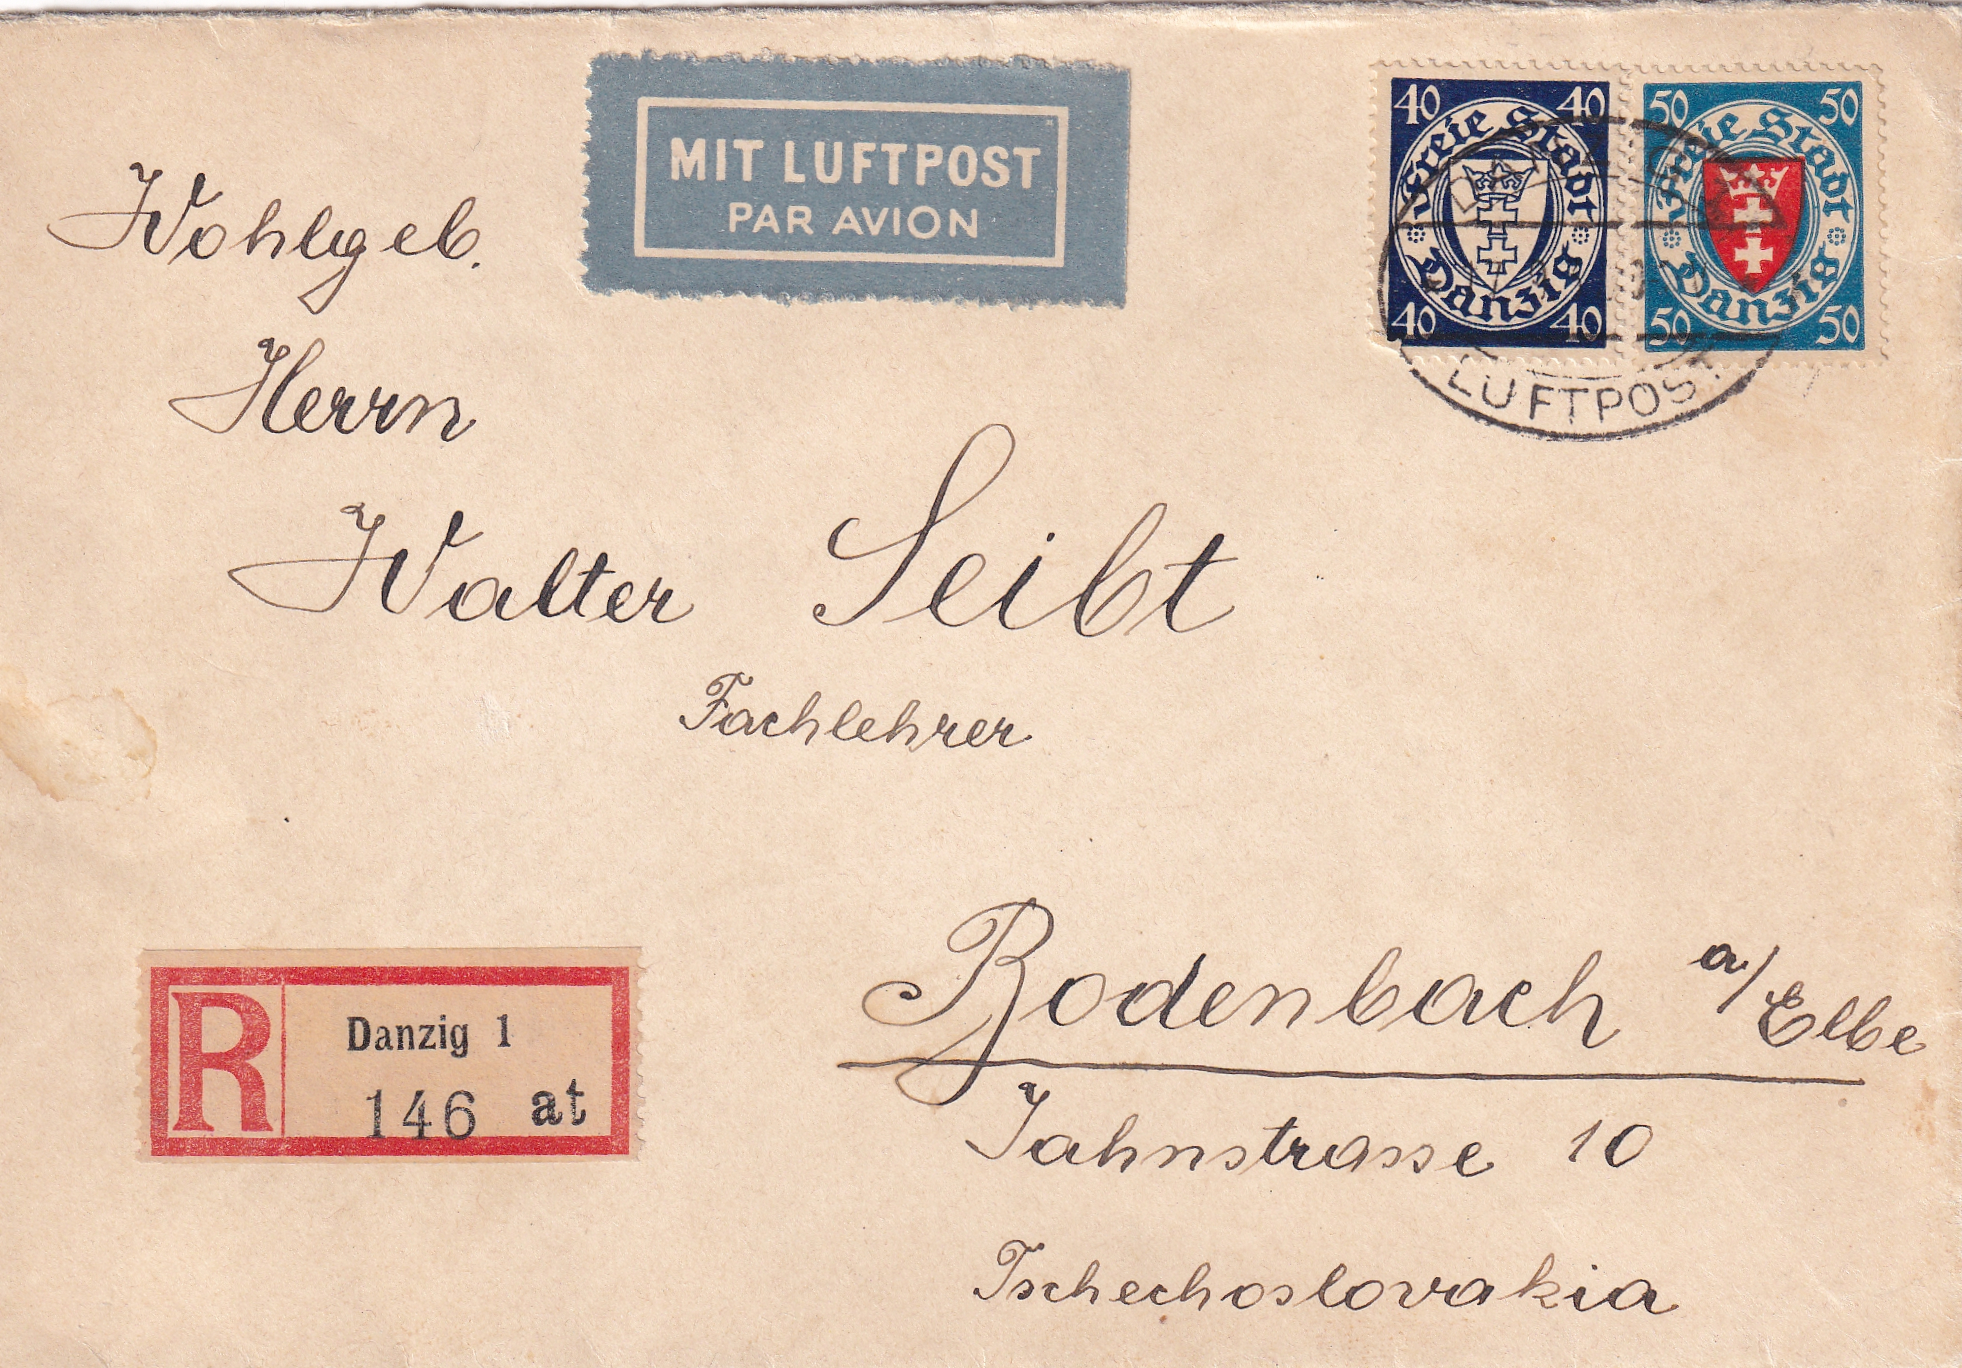 MIT LUFTPOST
PAR AVION
40 40
Freie Stadt
Danzig
40 40
50 50
Freie Stadt
Danzig
50 50
LUFTPOST
Wohlgeb.
Herrn
Walter Seibt
Fachlehrer
R
Danzig 1
146 at
Bodenbach a/Elbe
Jahnstrasse 10
Tschechoslovakia